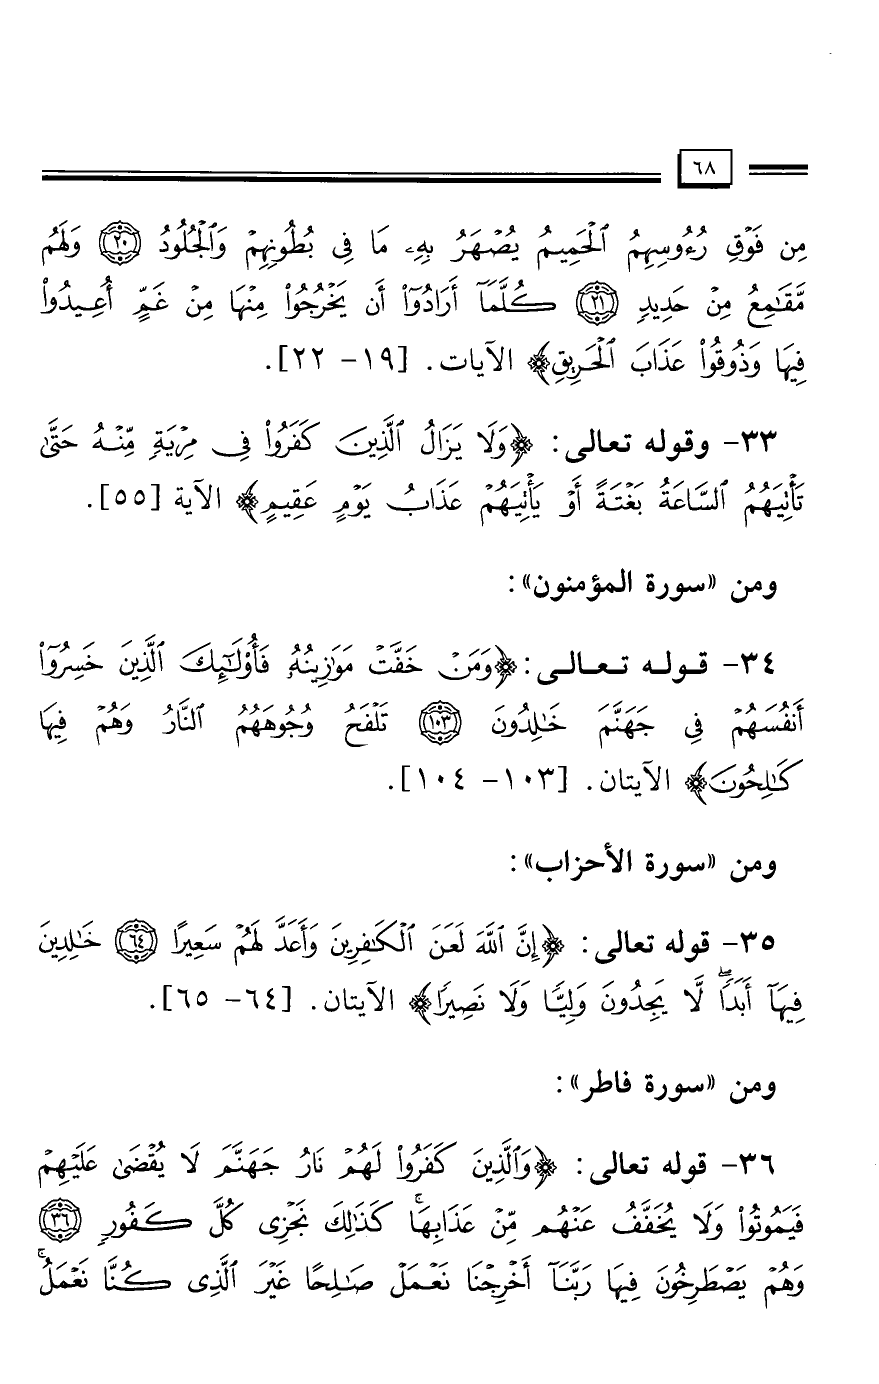 ٦٨
مِن فَوْقِ رُءُوسِهِمُ ٱلْحَمِيمُ يُصْهَرُ بِهِۦ مَا فِى بُطُونِهِمْ وَٱلْجُلُودُ ﴿٢٠﴾ وَلَهُم
مَّقَـٰمِعُ مِنْ حَدِيدٍ ﴿٢١﴾ كُلَّمَآ أَرَادُوٓا۟ أَن يَخْرُجُوا۟ مِنْهَا مِنْ غَمٍّ أُعِيدُوا۟
فِيهَا وَذُوقُوا۟ عَذَابَ ٱلْحَرِيقِ﴾ الآيات. [١٩- ٢٢].
٣٣- وقوله تعالى: ﴿وَلَا يَزَالُ ٱلَّذِينَ كَفَرُوا۟ فِى مِرْيَةٍ مِّنْهُ حَتَّىٰ
تَأْتِيَهُمُ ٱلسَّاعَةُ بَغْتَةً أَوْ يَأْتِيَهُمْ عَذَابُ يَوْمٍ عَقِيمٍ﴾ الآية [٥٥].
ومن «سورة المؤمنون»:
٣٤- قوله تعالى: ﴿وَمَنْ خَفَّتْ مَوَٰزِينُهُۥ فَأُو۟لَـٰٓئِكَ ٱلَّذِينَ خَسِرُوٓا۟
أَنفُسَهُمْ فِى جَهَنَّمَ خَـٰلِدُونَ ﴿١٠٣﴾ تَلْفَحُ وُجُوهَهُمُ ٱلنَّارُ وَهُمْ فِيهَا
كَـٰلِحُونَ﴾ الآيتان. [١٠٣- ١٠٤].
ومن «سورة الأحزاب»:
٣٥- قوله تعالى: ﴿إِنَّ ٱللَّهَ لَعَنَ ٱلْكَـٰفِرِينَ وَأَعَدَّ لَهُمْ سَعِيرًا ﴿٦٤﴾ خَـٰلِدِينَ
فِيهَآ أَبَدًا ۖ لَّا يَجِدُونَ وَلِيًّا وَلَا نَصِيرًا﴾ الآيتان. [٦٤- ٦٥].
ومن «سورة فاطر»:
٣٦- قوله تعالى: ﴿وَٱلَّذِينَ كَفَرُوا۟ لَهُمْ نَارُ جَهَنَّمَ لَا يُقْضَىٰ عَلَيْهِمْ
فَيَمُوتُوا۟ وَلَا يُخَفَّفُ عَنْهُم مِّنْ عَذَابِهَا ۚ كَذَٰلِكَ نَجْزِى كُلَّ كَفُورٍ ﴿٣٦﴾
وَهُمْ يَصْطَرِخُونَ فِيهَا رَبَّنَآ أَخْرِجْنَا نَعْمَلْ صَـٰلِحًا غَيْرَ ٱلَّذِى كُنَّا نَعْمَلُ ۚ